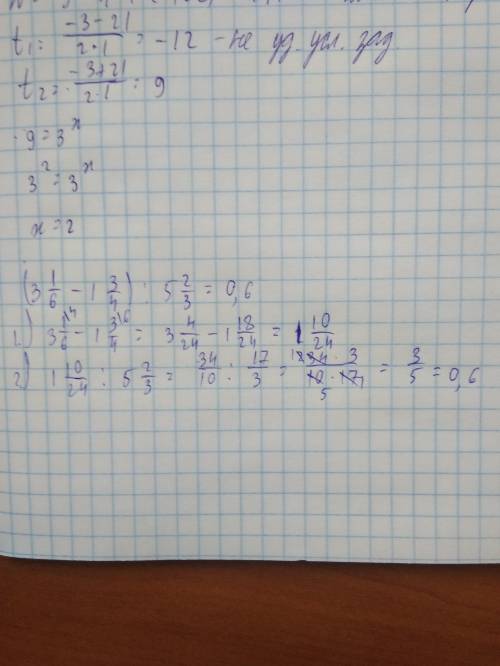 t₁ = (-3-21)/(2·1) = -12 - не уд. усл. зад.
t₂ = (-3+21)/(2·1) = 9
9 = 3ˣ
3² = 3ˣ
x = 2
(3 1/6 - 1 3/4) : 5 2/3 = 0,6
1.) 3 1/6 - 1 3/4 = 3 4/24 - 1 18/24 = 1 10/24
2) 1 10/24 : 5 2/3 = 34/10 : 17/3 = 34·3/10·17 = 3/5 = 0,6